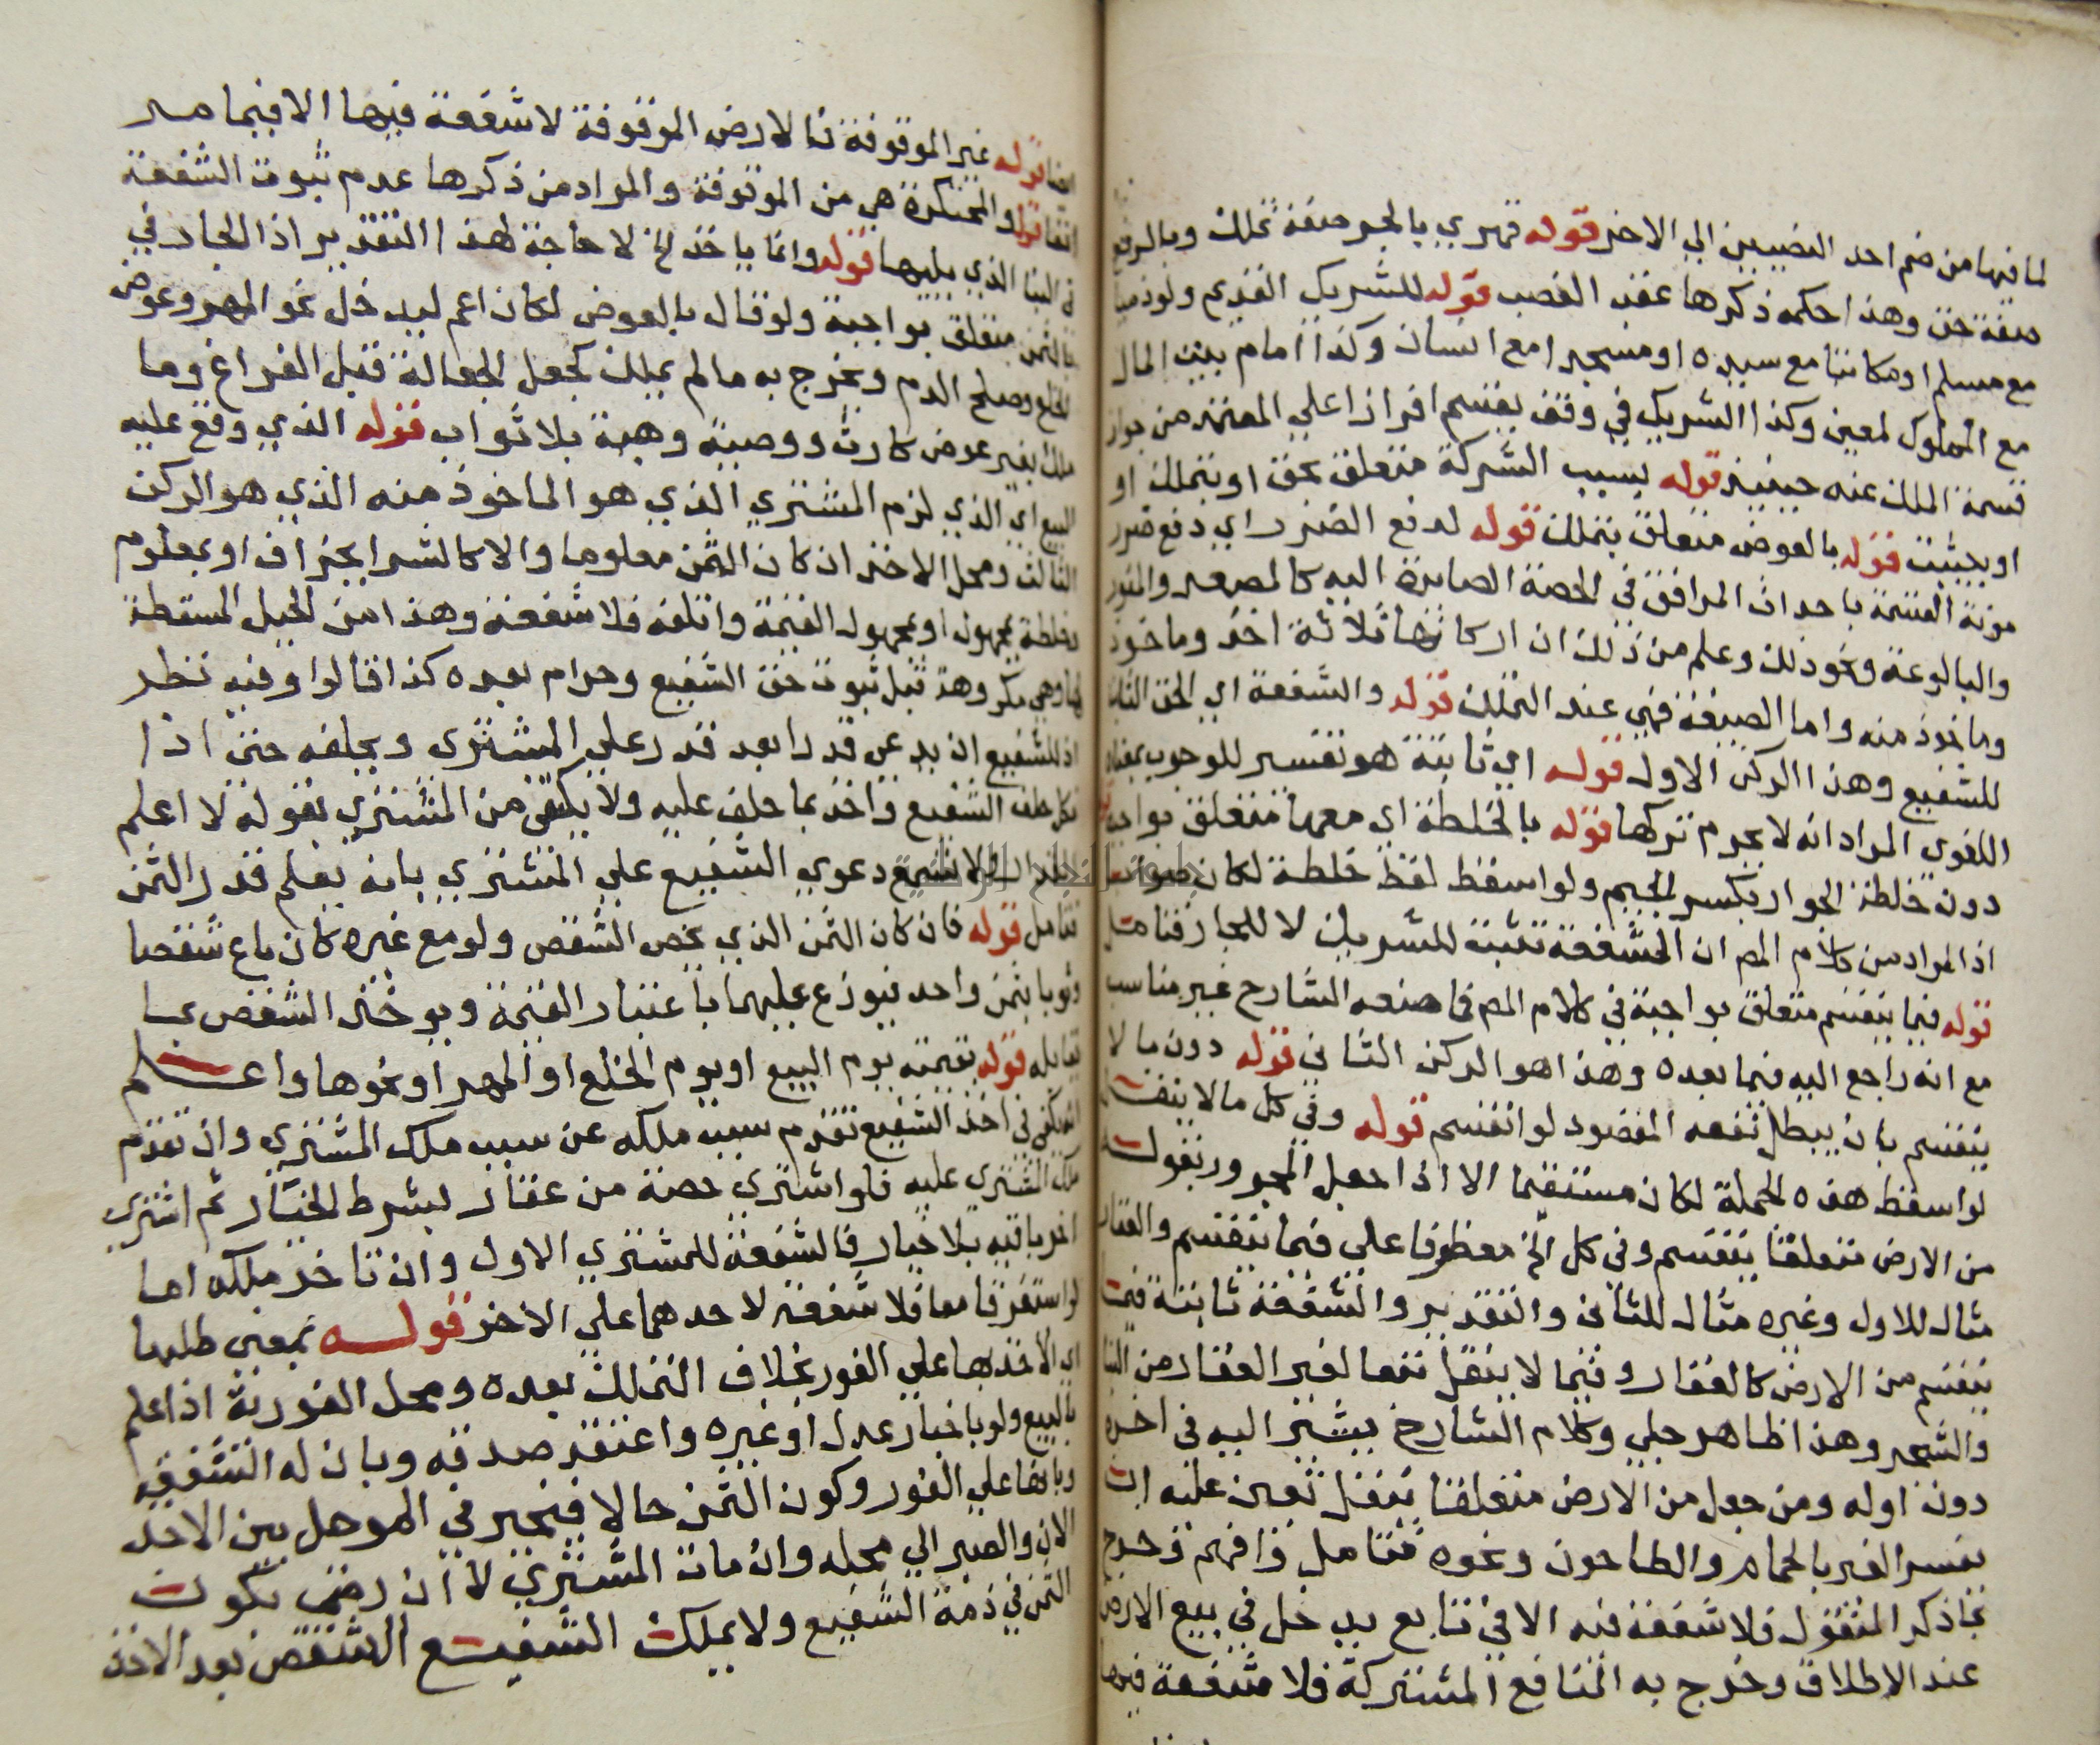 لما فيها من ضم احد النصيبين الي الاخر قوله قهري بالجر صفة تملك وبالرفع
صفة حق وهذا حكمه ذكرها عقب الغصب قوله للشريك القديم ولو ذميا
مع مسلم او مكاتبا مع سيده او مسجدا مع انسان وكذا امام بيت المال
مع المملوك لمعين وكذا الشريك في وقف يقسم افرازا علي المعتمد من جواز
قسمة الملك عنه حينيذ قوله بسبب الشركة متعلق بحق او بتملك او
او بيثبت قوله بالعوض متعلق بتملك قوله لدفع الضرر اي دفع ضرر
مونة القسمة باحداث المرافق في الحصة الصايرة اليه كالمصعد والمنور
والبالوعة ونحو ذلك وعلم من ذلك ان اركانها ثلاثة اخذ وماخوذ
وماخوذ منه واما الصيغة فهي عند التملك قوله والشفعة اي الحق الثابت
للشفيع وهذا الركن الاول قوله اي ثابتة هو تفسير للوجوب بمعناه
اللغوي المراد انه لا يحرم تركها قوله بالخلطة اي معها متعلق بواجبة
دون خلطة الجوار بكسر الجيم ولو اسقط لفظ خلطة لكان صوابا
اذ المراد من كلام المص ان الشفعة تثبت للشريك لا للجار فتامل
قوله فيما ينقسم متعلق بواجبة في كلام المص فما صنعه الشارح غير مناسب
مع انه راجع اليه فيما بعده وهذا هو الركن الثاني قوله دون ما لا
ينقسم بان يبطل نفعه المقصود لو انقسم قوله وفي كل ما لا ينقل
لو اسقط هذه الجملة لكان مستقيما الا اذا جعل المجرور بقوله
من الارض متعلقا بينقسم وفي كل الخ معطوفا علي فيما ينقسم والعقار
مثال للاول وغيره مثال للثاني والتقدير والشفعة ثابتة فيما
ينقسم من الارض كالعقار وفيما لا ينقل تبعا لغير العقار من البنا
والشجر وهذا ظاهر جلي وكلام الشارح يشير اليه في اخره
دون اوله ومن جعل من الارض متعلقا بينقل تعين عليه ان
يفسر الغير بالحمام والطاحون ونحوه فتامل وافهم وخرج
بما ذكر المنقول فلا شفعة فيه الا في تابع يدخل في بيع الارض
عند الاطلاق وخرج به المنافع المشتركة فلا شفعة فيها
ايضا قوله غير الموقوفة فالارض الموقوفة لا شفعة فيها الا فيما مر
انفا قوله والمحتكرة هي من الموقوفة والمراد من ذكرها عدم ثبوت الشفعة
في البنا الذي يليها قوله وانما ياخذ الخ لا حاجة لهذا التقدير اذ الجار في
بالثمن متعلق بواجبة ولو قال بالعوض لكان اعم ليدخل نحو المهر وعوض
الخلع وصلح الدم ويخرج به ما لم يملك كجعل الجعالة قبل الفراغ وما
ملك بغير عوض كارث ووصية وهبة بلا ثواب قوله الذي وقع عليه
البيع اي الذي لزم المشتري الذي هو الماخوذ منه الذي هو الركن
الثالث ومحل الاخذ ان كان الثمن معلوما والا كالشرا بجزاف او بمعلوم
وخلطة بمجهول او بمجهول القيمة واتلفه فلا شفعة وهذا من الحيل المسقطة
لها وهي مكروهة قبل ثبوت حق الشفيع وحرام بعده كذا قالوا وفيه نظر
اذ للشفيع ان يدعي قدرا بعد قدر علي المشتري ويحلفه حتي اذا
نكل حلف الشفيع واخذ بما حلف عليه ولا يكفي من المشتري بقوله لا اعلم
القدر ولا تسمع دعوي الشفيع علي المشتري بانه يعلم قدر الثمن
فتامل قوله فان كان الثمن الذي يخص الشقص ولو مع غيره كان باع شقصا
وثوبا بثمن واحد فيوزع عليهما باعتبار القيمة ويوخذ الشقص بما
يقابله قوله بقيمته يوم البيع او يوم الخلع او المهر او نحوها واعلم
انه يكفي في اخذ الشفيع تقدم سبب ملكه عن سبب ملك المشتري وان تقدم
ملك المشتري عليه فلو اشتري حصة من عقار بشرط الخيار ثم اشتري
اخر باقيه بلا خيار فالشفعة للمشتري الاول وان تاخر ملكه اما
لو استقر فا معا فلا شفعة لاحدهما علي الاخر قوله بمعني طلبها
اي الاخذ بها علي الفور بخلاف التملك بعده ومحل الفورية اذا علم
بالبيع ولو باخبار عدل او غيره واعتقد صدقه وبان له الشقص
وبانها علي الفور وكون الثمن حالا فيخير في الموجل بين الاخذ
الان والصبر الي محله وان مات المشتري لا ان رضي بكون
الثمن في ذمة الشفيع ولا يملك الشفيع الشقص بعد الاخذ